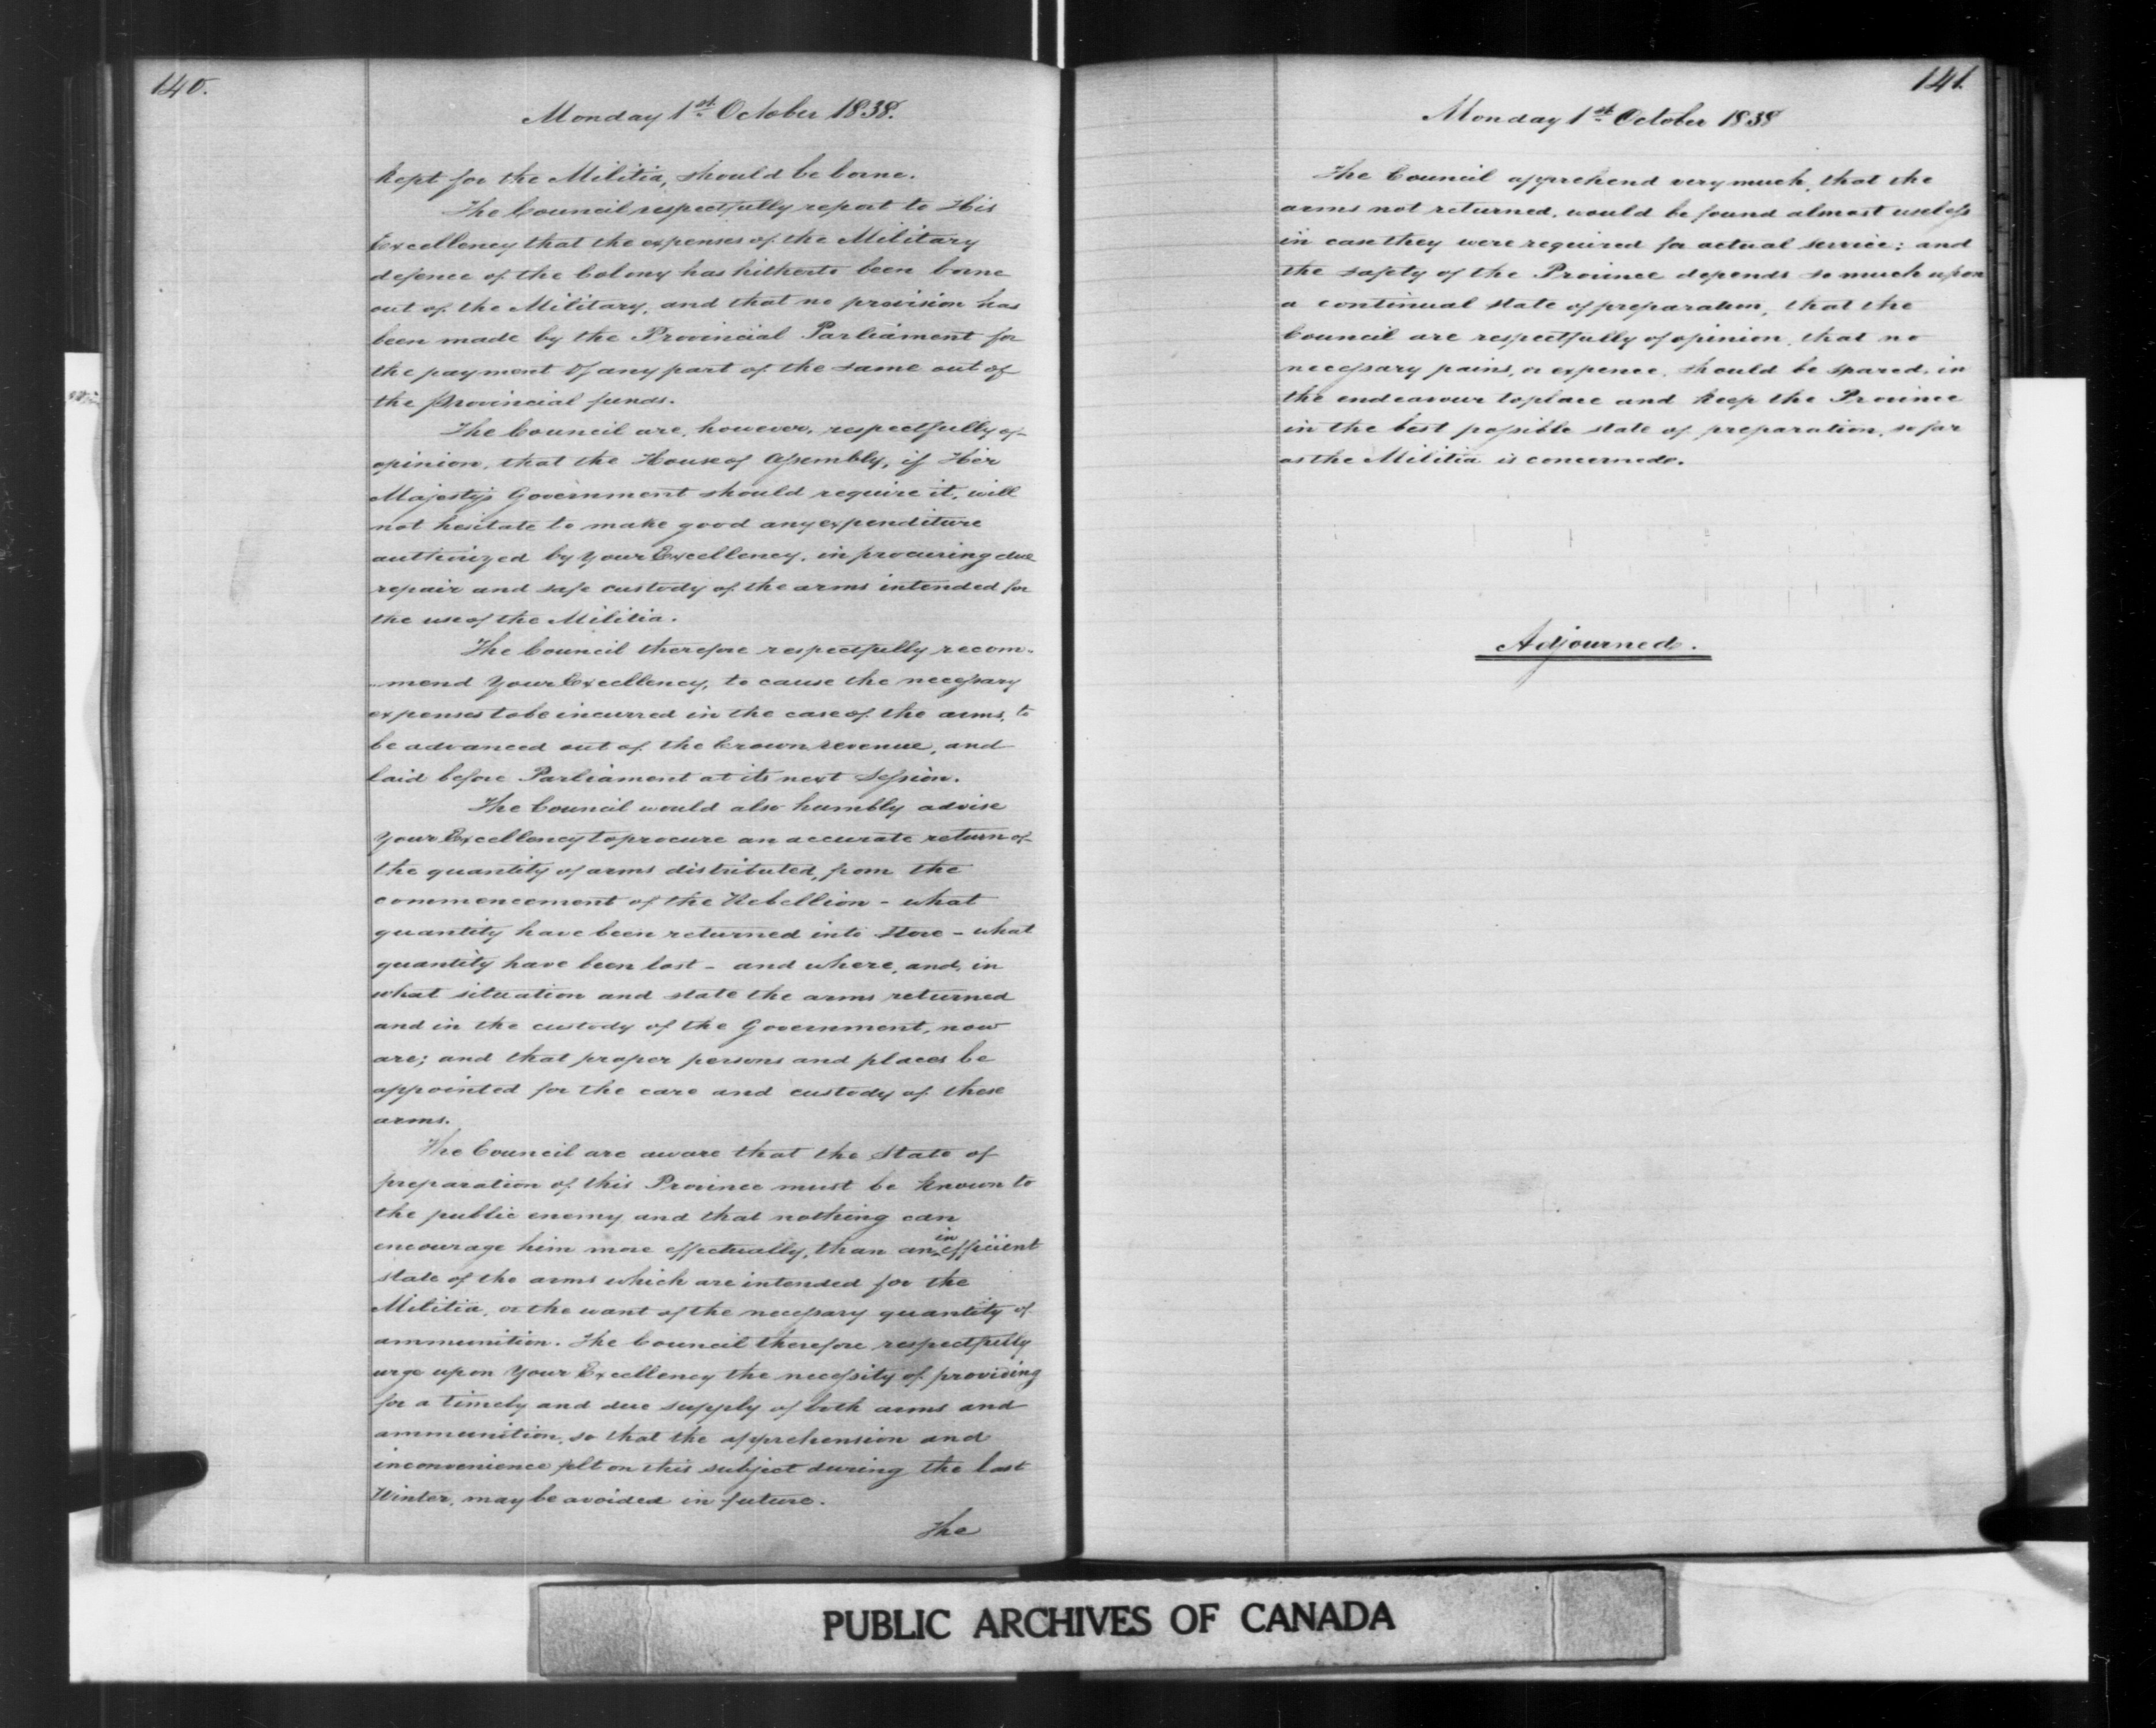 140.
Monday 1st October 1838.
kept for the Militia, should be borne.
The Council respectfully report to His
Excellency that the expenses of the Military
defence of the Colony has hitherto been borne
out of the Military, and that no provision has
been made by the Provincial Parliament for
the payment of any part of the same out of
the Provincial funds.
The Council are, however, respectfully of
opinion, that the House of Assembly, if Her
Majesty's Government should require it, will
not hesitate to make good any expenditure
authorized by Your Excellency, in procuring due
repair and safe custody of the arms intended for
the use of the Militia.
The Council therefore respectfully recom-
-mend Your Excellency, to cause the necessary
expenses to be incurred in the case of the arms, to
be advanced out of the Crown revenue, and
laid before Parliament at its next Session.
The Council would also humbly advise
Your Excellency to procure an accurate return of
the quantity of arms distributed, from the
commencement of the Rebellion - what
quantity have been returned into Store - what
quantity have been lost - and where, and, in
what situation and state the arms returned
and in the custody of the Government, now
are; and that proper persons and places be
appointed for the care and custody of these
arms.
The Council are aware that the State of
preparation of this Province must be known to
the public enemy and that nothing can
encourage him more effectually, than an inefficient
state of the arms which are intended for the
Militia, or the want of the necessary quantity of
ammunition. The Council therefore respectfully
urge upon Your Excellency the necessity of providing
for a timely and due supply of both arms and
ammunition, so that the apprehension and
inconvenience felt on this subject during the last
Winter, may be avoided in future.
The
141.
Monday 1st October 1838
The Council apprehend very much, that the
arms not returned, would be found almost useless
in case they were required for actual service; and
the safety of the Province depends so much upon
a continual state of preparation, that the
Council are respectfully of opinion, that no
necessary pains, or expence, should be spared, in
the endeavour to place and keep the Province
in the best possible state of preparation, so far
as the Militia is concerned.
Adjourned.
PUBLIC ARCHIVES OF CANADA